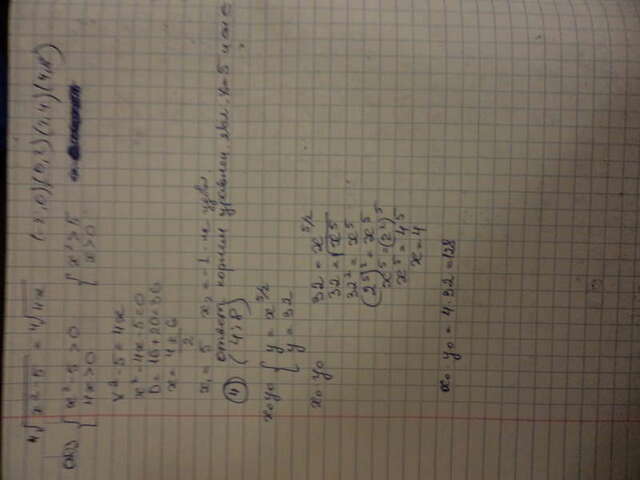 ⁴√x²-5 = ⁴√4x (-2,0)(0,2)(1,4)(4,8)
ОДЗ { x²-5 > 0 { x² > 5
4x > 0 x > 0
x²-5 = 4x
x²-4x-5=0
D = 16+20=36
x = 4±6 / 2
x₁ = 5 x₂ = -1 не удов
ответ корнем уравнения явл. x=5
④ (4;8)
x₀y₀ { y = x^5/2
y = 32
x₀ y₀ 32 = x^5/2
32 = √x⁵
32² = x⁵
(2⁵)² = x⁵
x⁵ = (2²)⁵
x⁵ = 4⁵
x = 4
x₀ · y₀ = 4·32 = 128